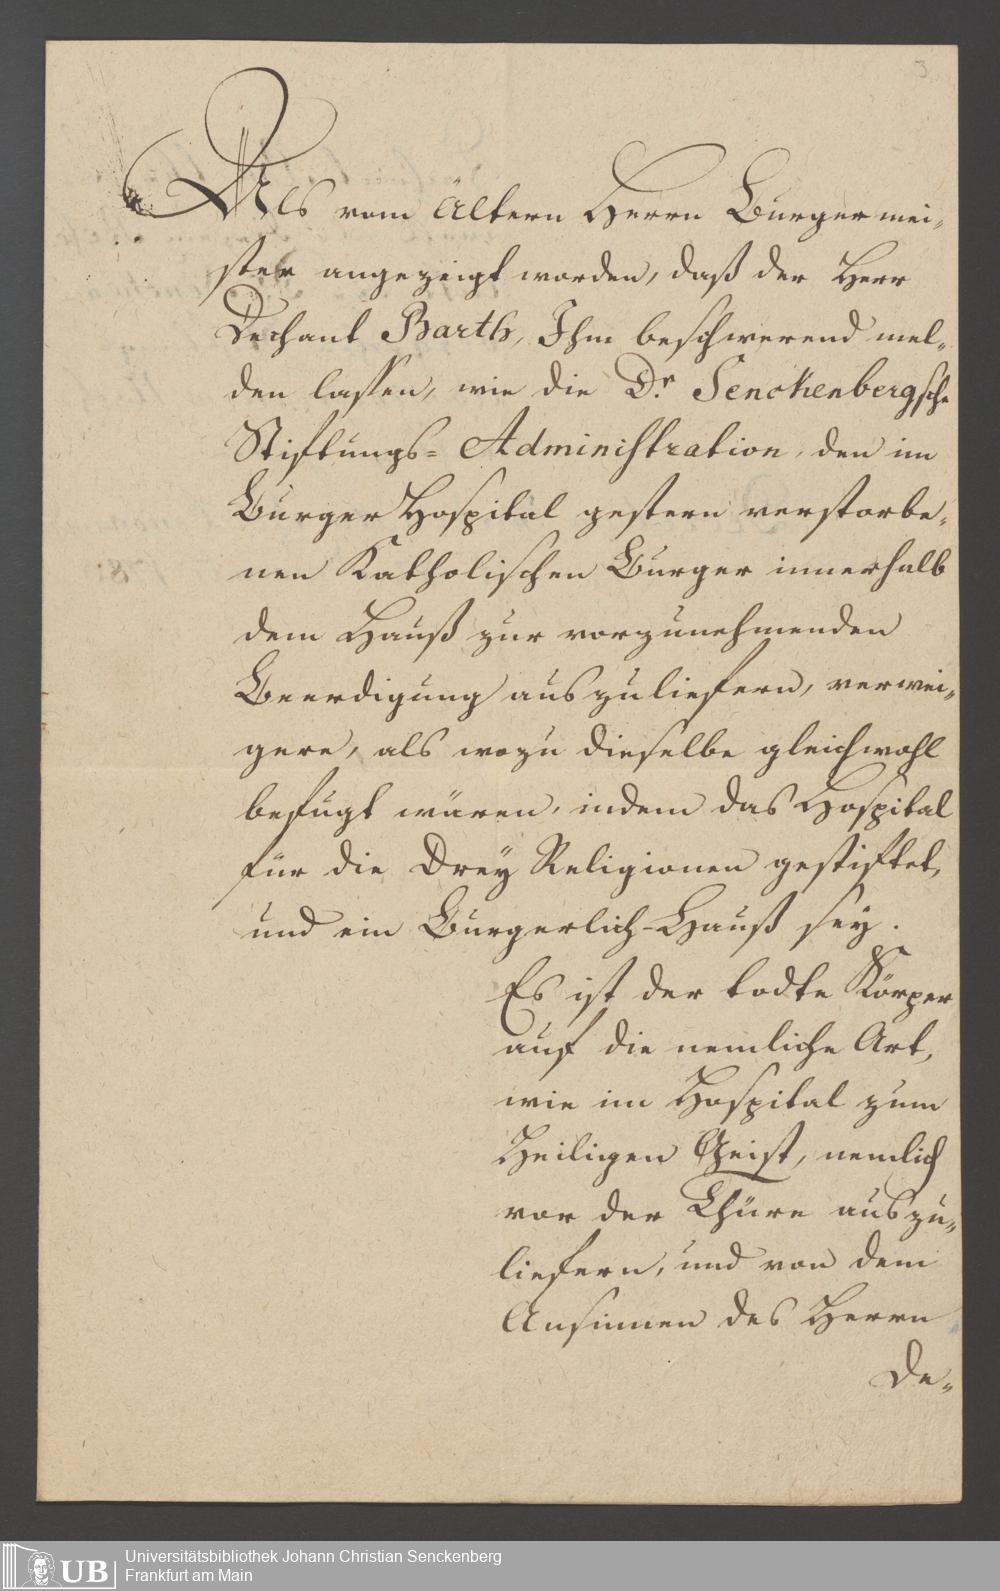 3
Als vom ältern Herrn Burgermei-
ster angezeigt worden, daß der Herr
Dechant Barth, Ihm beschwerend mel-
den lassen, wie die Dr. Senckenbergsche
Stiftungs- Administration, den im
Burger Hospital gestern verstorbe-
nen Katholischen Burger innerhalb
dem Hauß zur vorzunehmenden
Beerdigung auszuliefern, verwei-
gere, als wozu dieselbe gleichwohl
befugt wären, indem das Hospital
für die Drey Religionen gestiftet,
und ein Burgerlich-Hauß sey.
Es ist der todte Körper
auf die nemliche Art,
wie im Hospital zum
Heiligen Geist, nemlich
vor der Thüre auszu-
liefern, und von dem
Ansinnen des Herrn
De-
UB
Universitätsbibliothek Johann Christian Senckenberg
Frankfurt am Main